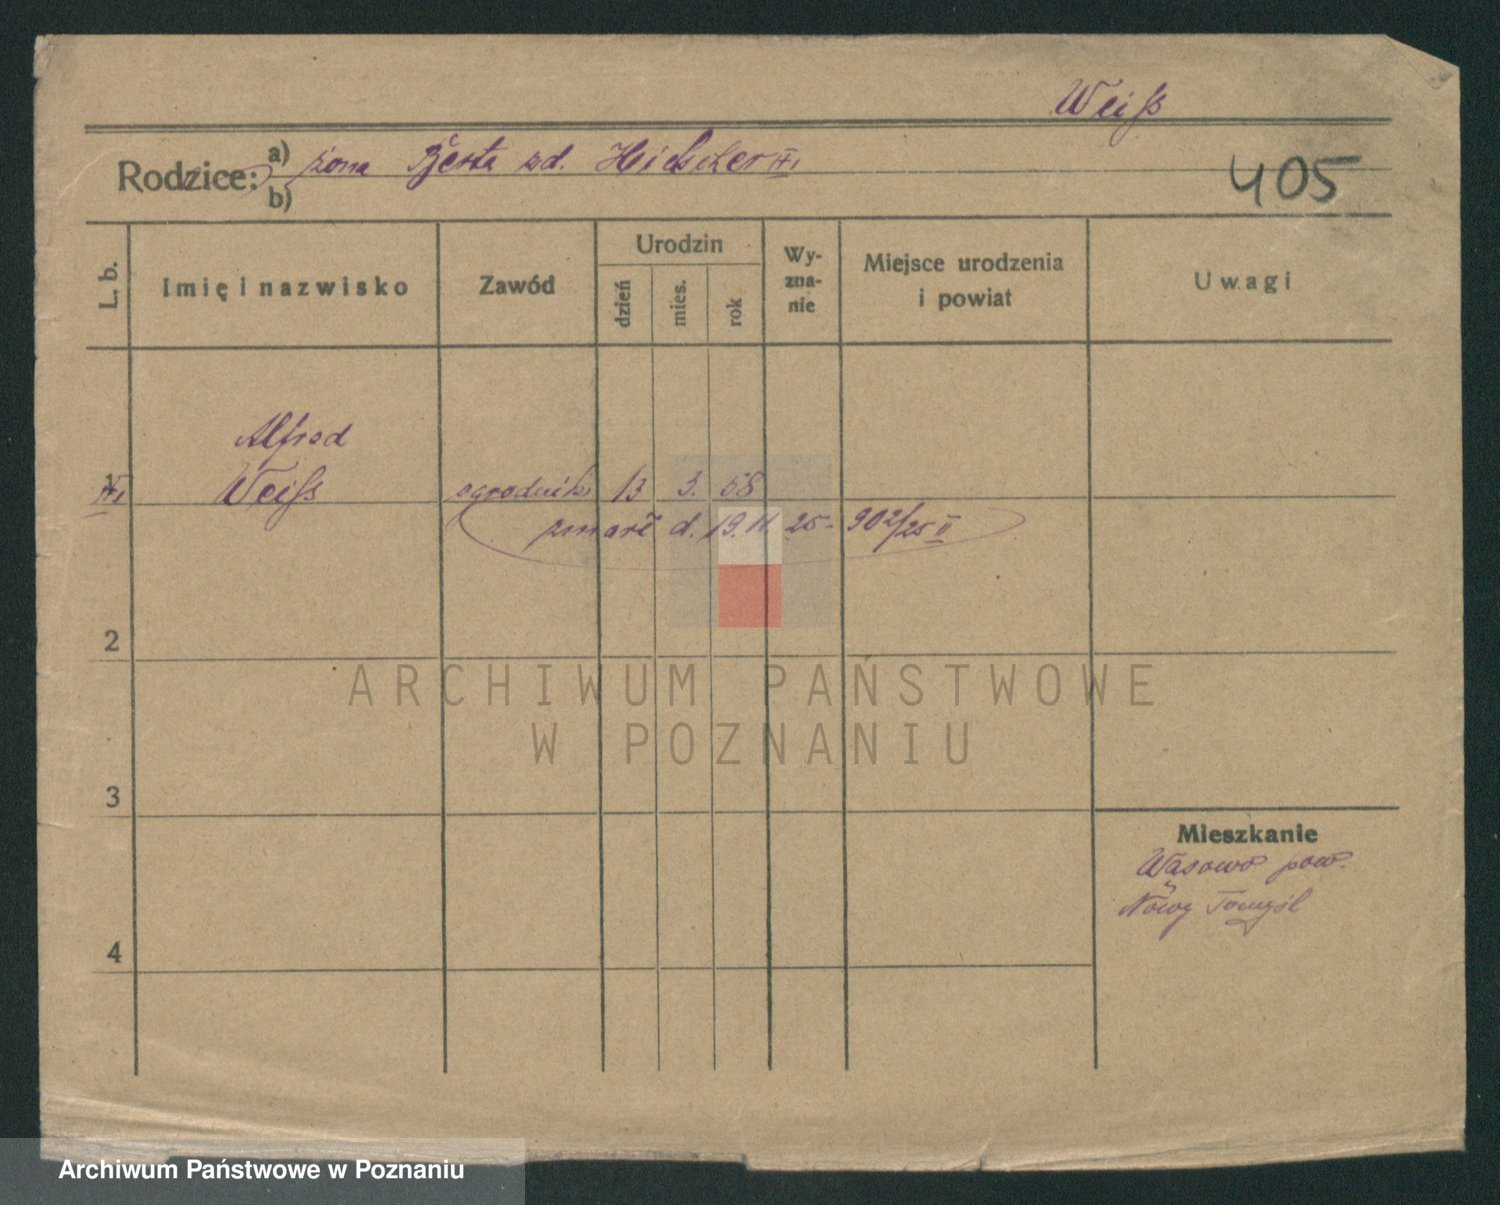 Weiß
Rodzice: a) żona Berta zd.
b)
405
L. b.
Imię i nazwisko
Zawód
Urodzin
dzień
mies.
rok
Wy-
zna-
nie
Miejsce urodzenia
i powiat
Uwagi
Alfred
1 Weiß ogrodnik 13 3. 58
VI
zmarł d. 19. 11. 25 - 902/25 II
2
3
4
Mieszkanie
Wąsowo pow.
Nowy Tomyśl
ARCHIWUM PAŃSTWOWE
W POZNANIU
Archiwum Państwowe w Poznaniu